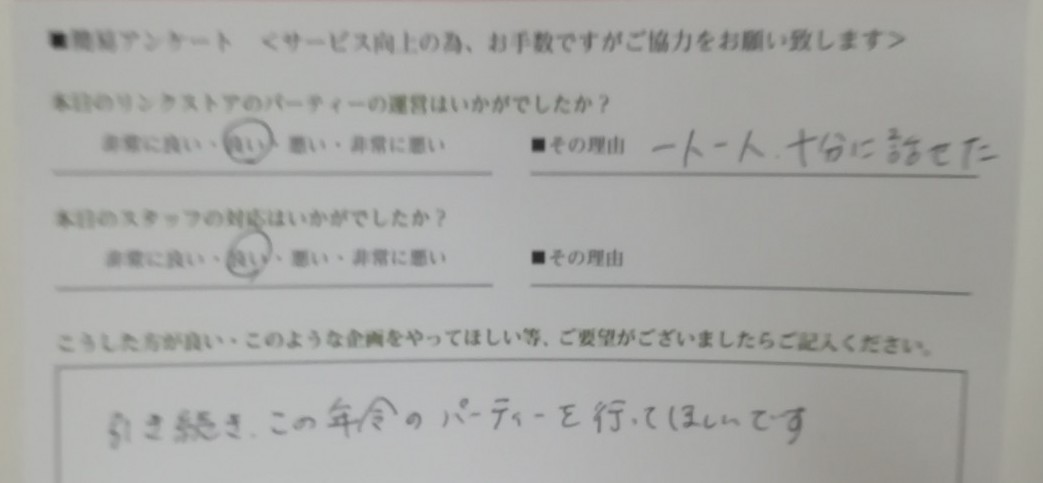 ■簡易アンケート　＜サービス向上の為、お手数ですがご協力をお願い致します＞
本日のリンクストアのパーティーの運営はいかがでしたか？
非常に良い・良い・悪い・非常に悪い　■その理由　一人一人、十分に話せた
本日のスタッフの対応はいかがでしたか？
非常に良い・良い・悪い・非常に悪い　■その理由
こうした方が良い・このような企画をやってほしい等、ご要望がございましたらご記入ください。
引き続き、この年令のパーティーを行ってほしいです